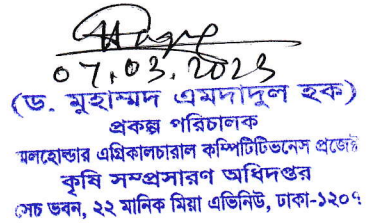 07.03.2023
(ড. মুহাম্মদ এমদাদুল হক)
প্রকল্প পরিচালক
মলহোল্ডার এগ্রিকালচারাল কম্পিটিটিভনেস প্রজেক্ট
কৃষি সম্প্রসারণ অধিদপ্তর
সেচ ভবন, ২২ মানিক মিয়া এভিনিউ, ঢাকা-১২০৭